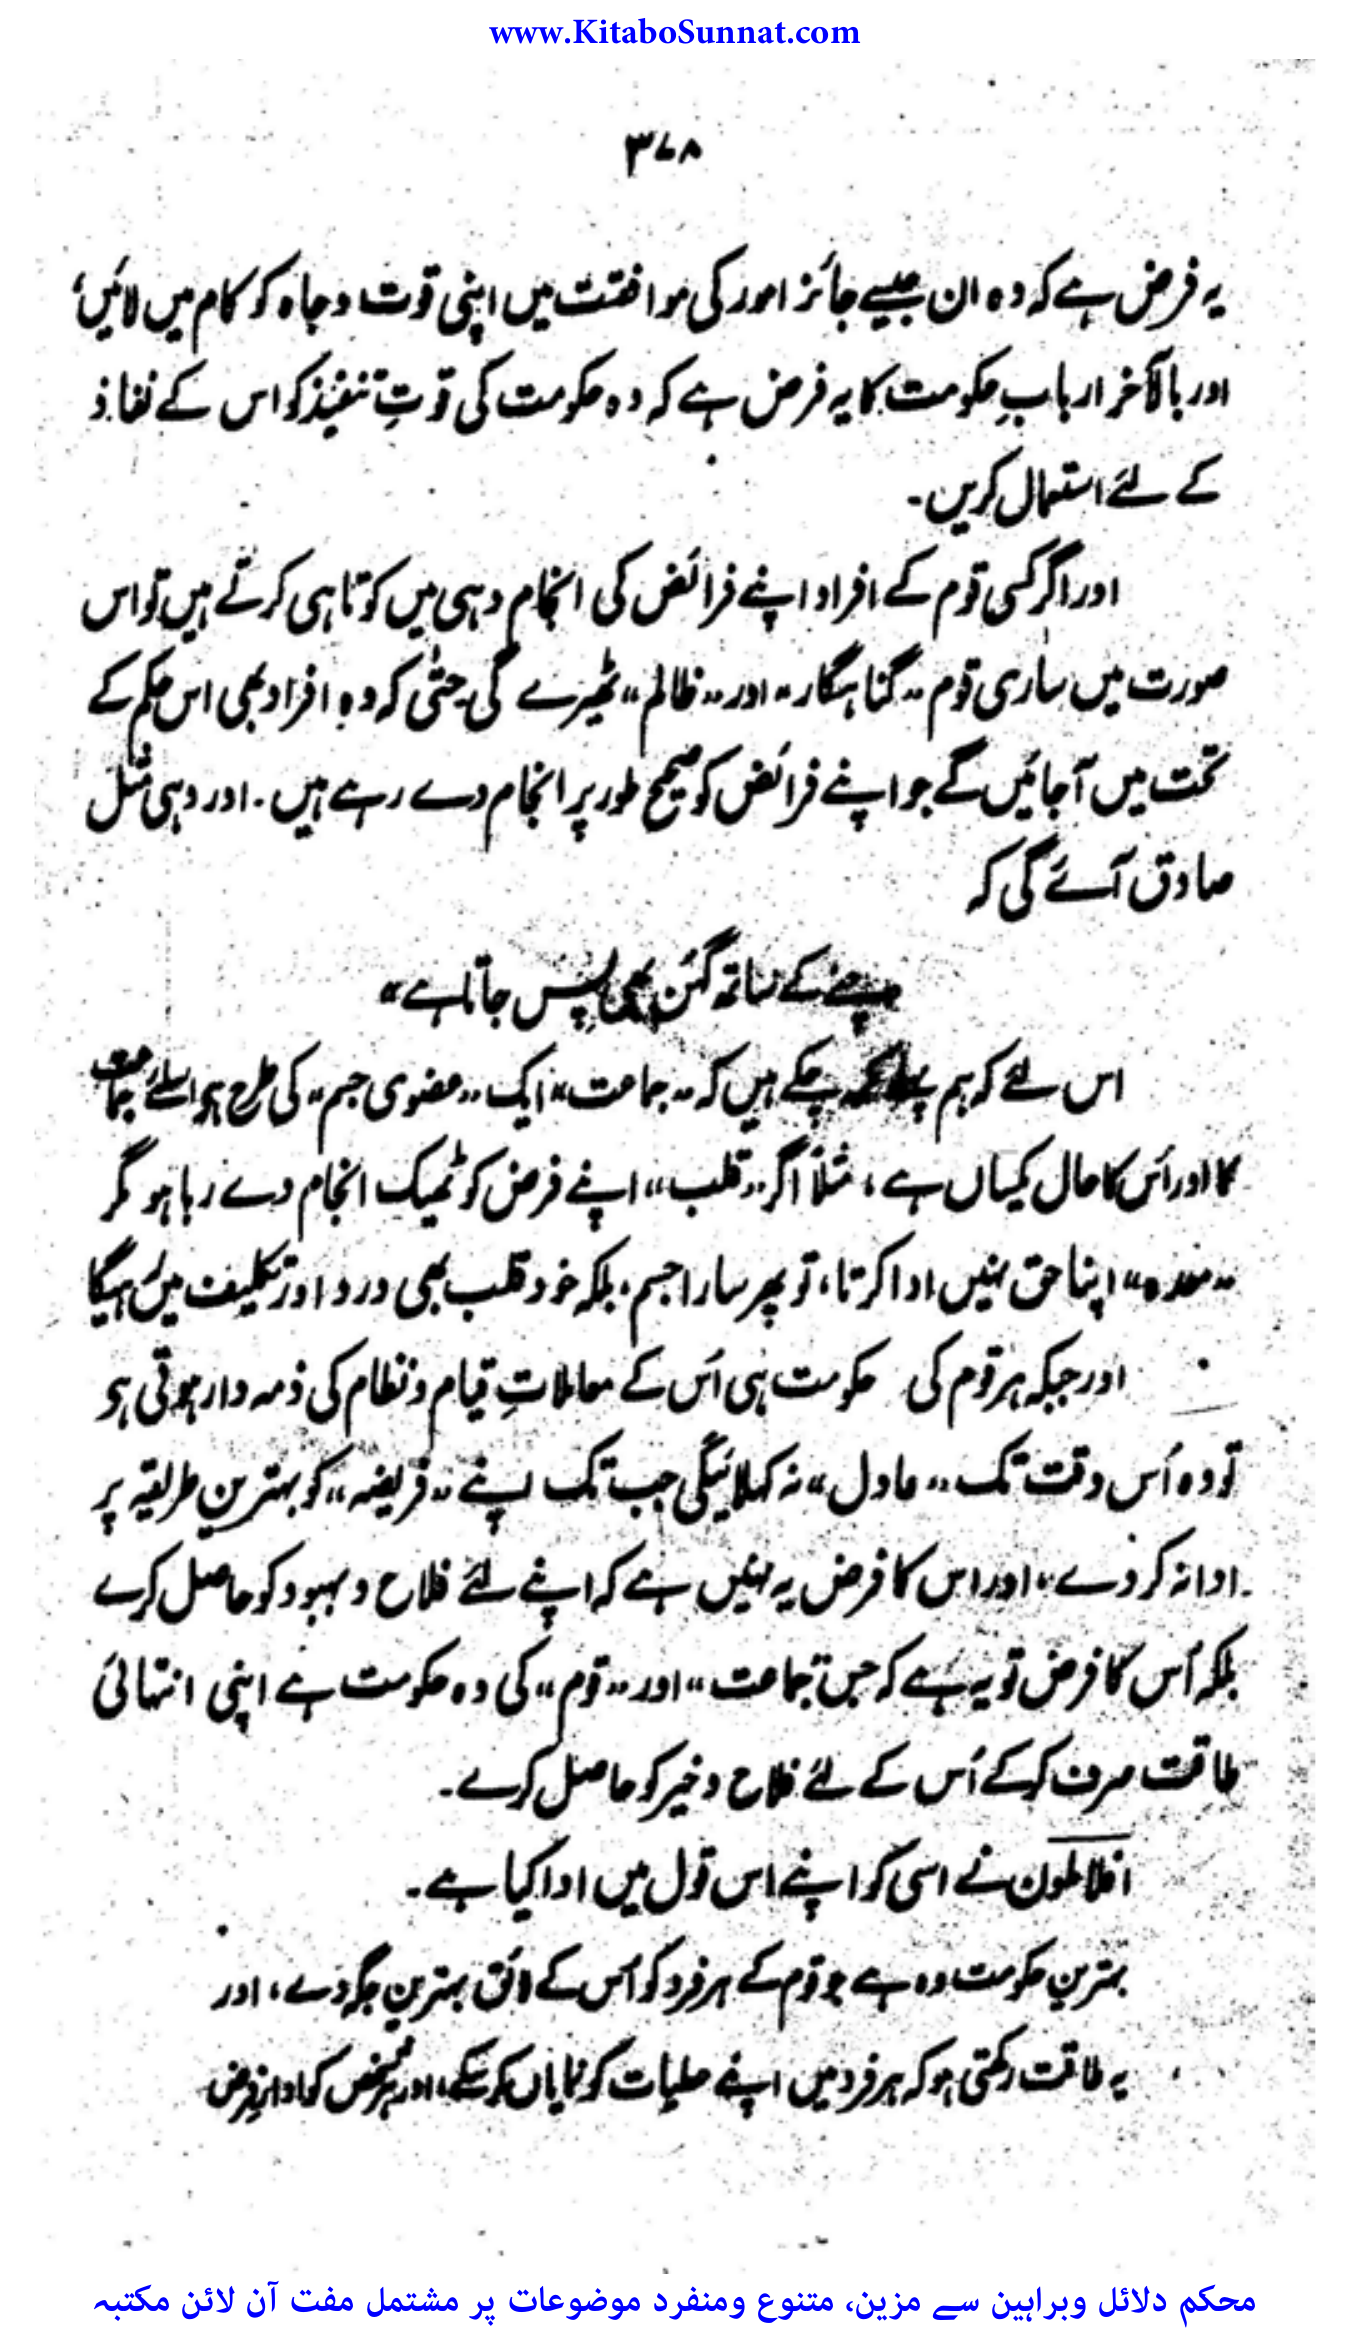 www.KitaboSunnat.com
۳۷۸
یہ فرض ہے کہ وہ ان جیسے جائز امور کی موافقت میں اپنی قوت و جاہ کو کام میں لائیں،
اور بالآخر اربابِ حکومت کا یہ فرض ہے کہ وہ حکومت کی قوتِ تنفیذ کو اس کے نفاذ
کے لئے استعمال کریں۔
اور اگر کسی قوم کے افراد اپنے فرائض کی انجام دہی میں کوتاہی کرتے ہیں تو اس
صورت میں ساری قوم ”گناہگار“ اور ”ظالم“ ٹھیرے گی۔ حتٰی کہ وہ افراد بھی اس حکم کے
تحت میں آجائیں گے جو اپنے فرائض کو صحیح طور پر انجام دے رہے ہیں۔ اور وہی مثل
صادق آئے گی کہ
چنے کے ساتھ گھن بھی پس جاتا ہے“
اس لئے کہ ہم پہلے کہہ چکے ہیں کہ ”جماعت“ ایک ”عضوی جسم“ کی طرح ہو اسلئے جماعت
کا اور اُس کا حال یکساں ہے، مثلاً اگر ”قلب“ اپنے فرض کو ٹھیک انجام دے رہا ہو مگر
”معدہ“ اپنا حق نہیں ادا کرتا، تو پھر سارا جسم، بلکہ خود قلب بھی درد اور تکلیف میں رہیگا
اور جبکہ ہر قوم کی حکومت ہی اُس کے معاملاتِ قیام و نظام کی ذمہ دار ہوتی ہو
تو وہ اُس وقت تک ”عادل“ نہ کہلائیگی جب تک اپنے ”فریضہ“ کو بہترین طریقہ پر
ادا نہ کر دے، اور اس کا فرض یہ نہیں ہے کہ اپنے لئے فلاح و بہبود کو حاصل کرے
بلکہ اُس کا فرض تو یہ ہے کہ جس ”جماعت“ اور ”قوم“ کی وہ حکومت ہے اپنی انتہائی
طاقت صرف کرکے اُس کے لئے فلاح و خیر کو حاصل کرے۔
افلاطون نے اسی کو اپنے اس قول میں ادا کیا ہے۔
بہترین حکومت وہ ہے جو قوم کے ہر فرد کو اُس کے لائق بہترین جگہ دے، اور
یہ طاقت رکھتی ہو کہ ہر فرد میں اپنے عطیات کو نمایاں کر سکے، اور ہر شخص کو اداءِ فرض
محکم دلائل وبراہین سے مزین، متنوع ومنفرد موضوعات پر مشتمل مفت آن لائن مکتبہ